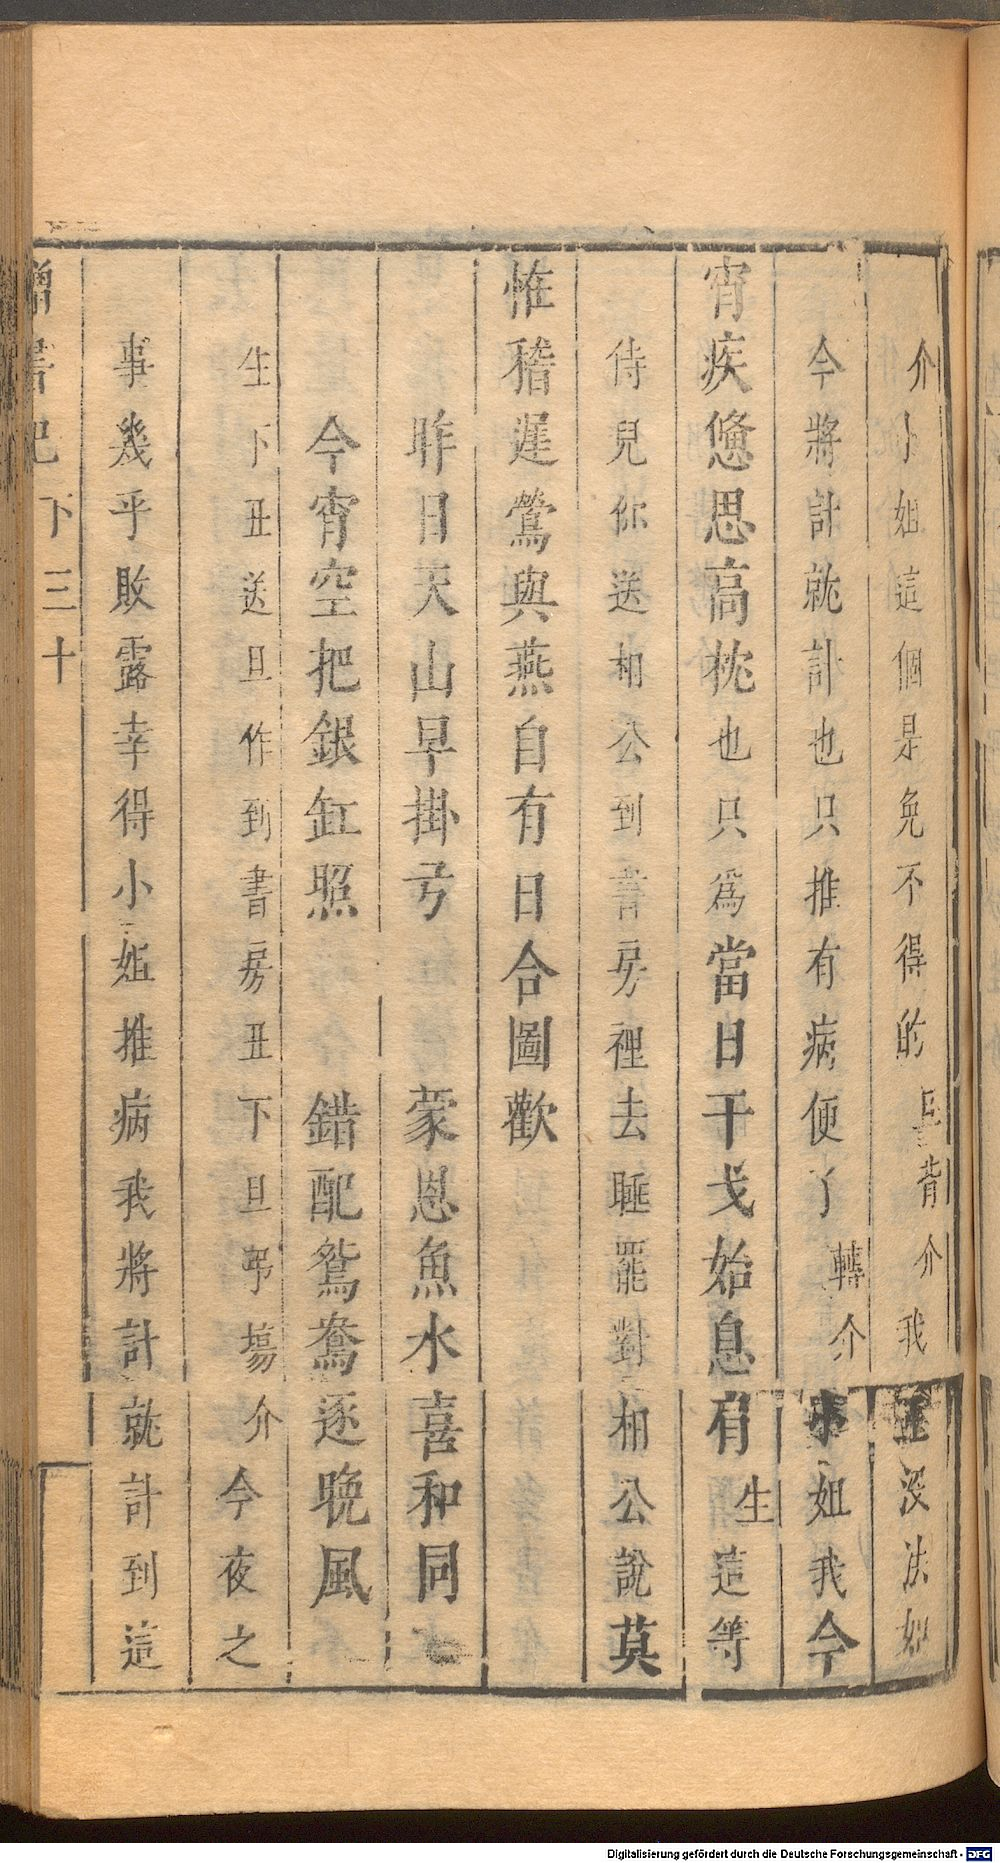 介小姐這個是免不得的旦背介我正沒法如
今將計就計也只推有病便了轉介小姐我今
宵疾憊思高枕也只爲當日干戈始息肩生這等
侍兒你送相公到書房裡去睡罷對相公說莫
惟稽遲鶯與燕自有日合圖歡
昨日天山早掛弓 蒙恩魚水喜和同
今宵空把銀缸照 錯配鴛鴦逐晚風
生下丑送旦作到書房丑下旦弔塲介今夜之
事幾乎敗露幸得小姐推病我將計就計到這
下 三十
Digitalisierung gefördert durch die Deutsche Forschungsgemeinschaft - DFG